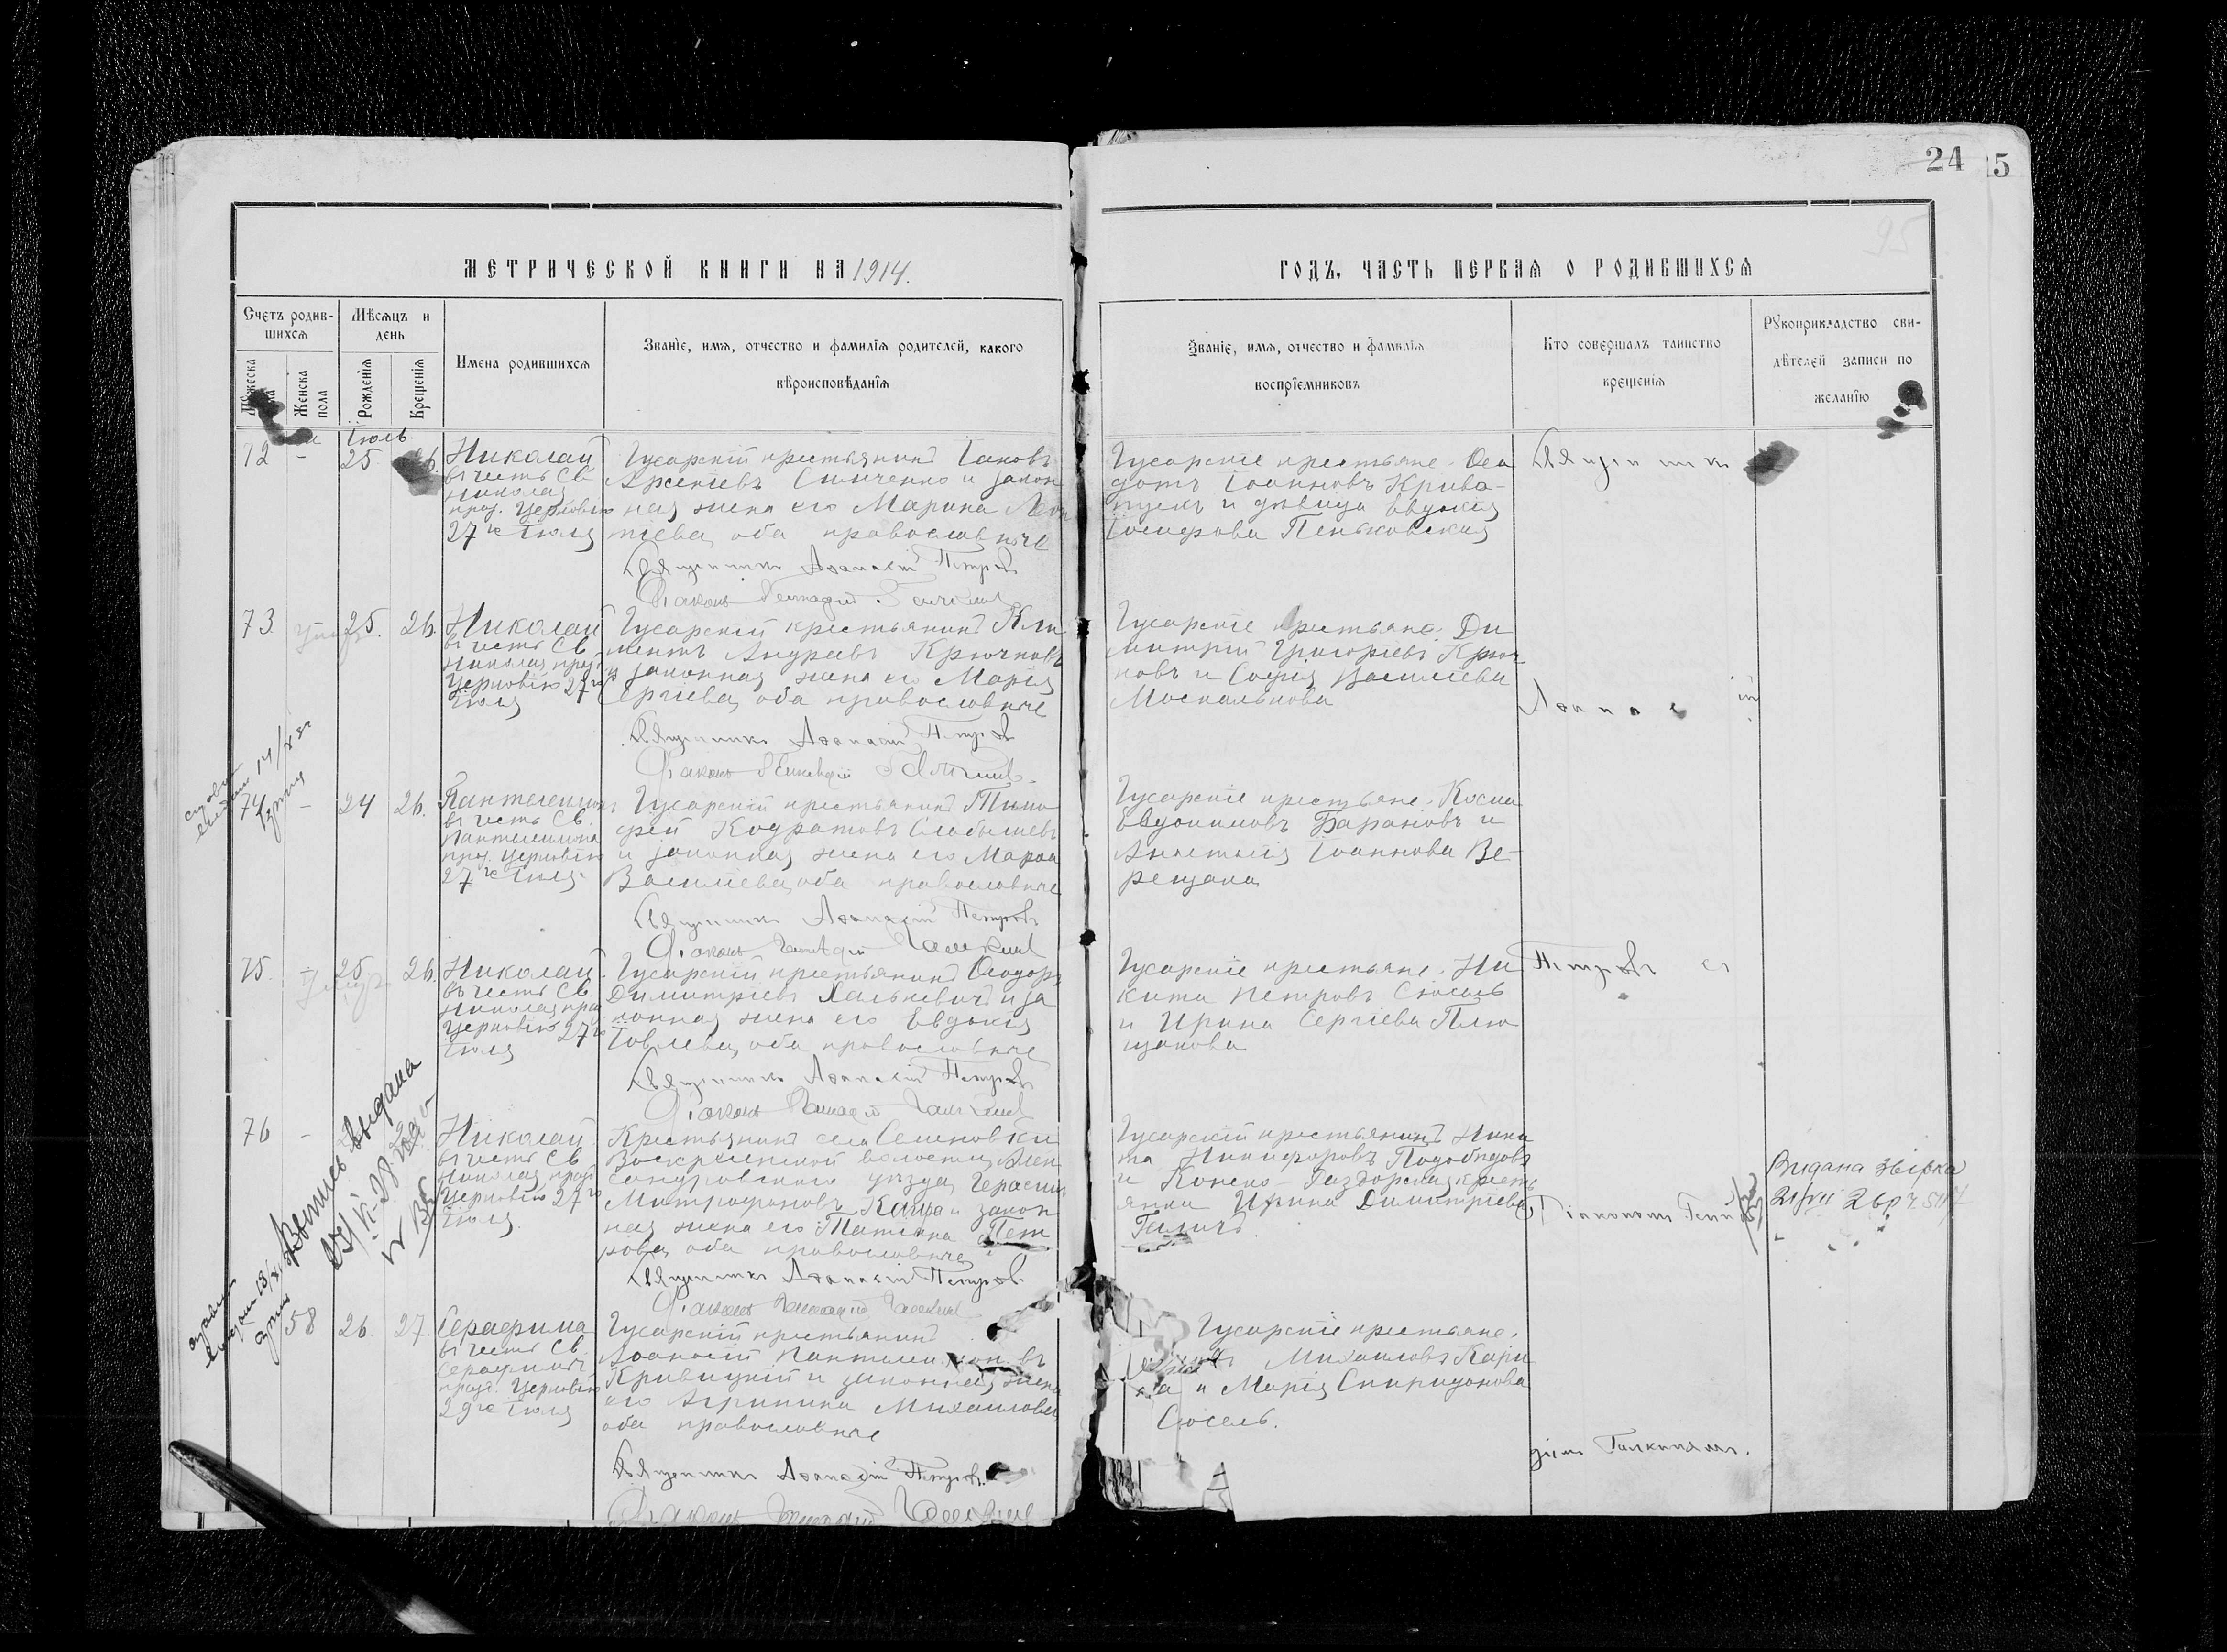 24
5
95
МЕТРИЧЕСКОЙ КНИГИ НА 1914.
ГОДЪ, ЧАСТЬ ПЕРВАЯ О РОДИВШИХСЯ
Счетъ родив-
шихся
Мужеска
пола
Женска
пола
Мѣсяцъ и
день
Рожденія
Крещенія
Имена родившихся
Званіе, имя, отчество и фамилія родителей, какого
вѣроисповѣданія
Званіе, имя, отчество и фамилія
воспріемниковъ
Кто совершалъ таинство
крещенія
Рукоприкладство сви-
дѣтелей записи по
желанію
Іюль.
72 - 25 26.
Николай
въ честь Св.
Николая
праз. Церковію
27го Іюля
Гусарскій крестьянинъ Іаковъ
Арсеніевъ и закон
ная жена его Марина Леон
тіева, оба православные
Священникъ Аѳанасій Петровъ
Діаконъ Геннадій Галкинъ
Гусарскіе крестьяне. Ѳео
дотъ Іоанновъ Крива-
и дѣвица Евдокія
Іосифова Пеньковская
Священникъ
73. 25. 26.
Николай
въ честь Св.
Николая праз.
Церковію 27го
Іюля
Гусарскій крестьянинъ Кли
ментъ Андреевъ Крючковъ
и законная жена его Марія
Сергіева, оба православные
Священникъ Аѳанасій Петровъ
Діаконъ Геннадій Галкинъ
Гусарскіе крестьяне. Ди
митрій Григоріевъ Крюч
ковъ и Софія Василіева
Москалькова
Аѳанасій
74 - 24 26.
Пантелеимонъ
въ честь Св.
Пантелеимона
праз. Церковію
27го Іюля.
Гусарскій крестьянинъ Тимо
фей Кодратовъ Слабышевъ
и законная жена его Марѳа
Василіева, оба православные
Священникъ Аѳанасій Петровъ
Діаконъ Геннадій Галкинъ
Гусарскіе крестьяне. Косма
Евдокимовъ Барановъ и
Анастасія Іоаннова Ве-
рещака
75. - 25. 26.
Николай
въ честь Св.
Николая праз.
Церковію 27го
Іюля
Гусарскій крестьянинъ Ѳеодоръ
Димитріевъ Халькевичъ и за
конная жена его Евдокія
Іовлева, оба православные
Священникъ Аѳанасій Петровъ
Діаконъ Геннадій Галкинъ
Гусарскіе крестьяне. Ни
кита Петровъ Сюсель
и Ирина Сергіева Плю
щакова
Петровъ съ
76 -
Николай
въ честь Св.
Николая праз.
Церковію 27го
Іюля.
Крестьянинъ села Семеновки
Воскресенской волости, Алек
сандровскаго уѣзда, Герасимъ
Митрофановъ Каща и закон
ная жена его Татіана Пет
рова, оба православные
Священникъ Аѳанасій Петровъ
Діаконъ Геннадій Галкинъ
Гусарскій крестьянинъ Ники
та Никифоровъ Подобѣдовъ
и Конско-Раздорская кресть
янка Ирина Димитріева
Галичъ
Діакономъ Генна
Видана звірка
21/VII 26р. ч. 517
Выпись выдана
23/VI-28 года
№ 135
58 26. 27.
Серафима
въ честь Св.
Серафима
празд. Церковію
29го Іюля
Гусарскій крестьянинъ
Аѳанасій Пантелеимоновъ
Кривицкій и законная жена
его Агрипина Михаилова
оба православные
Священникъ Аѳанасій Петровъ.
Діаконъ Геннадій Галкинъ
Гусарскіе крестьяне.
Михаиловъ Кари
ка и Марія Спиридонова
Сюсель.
діемъ Галкинымъ.